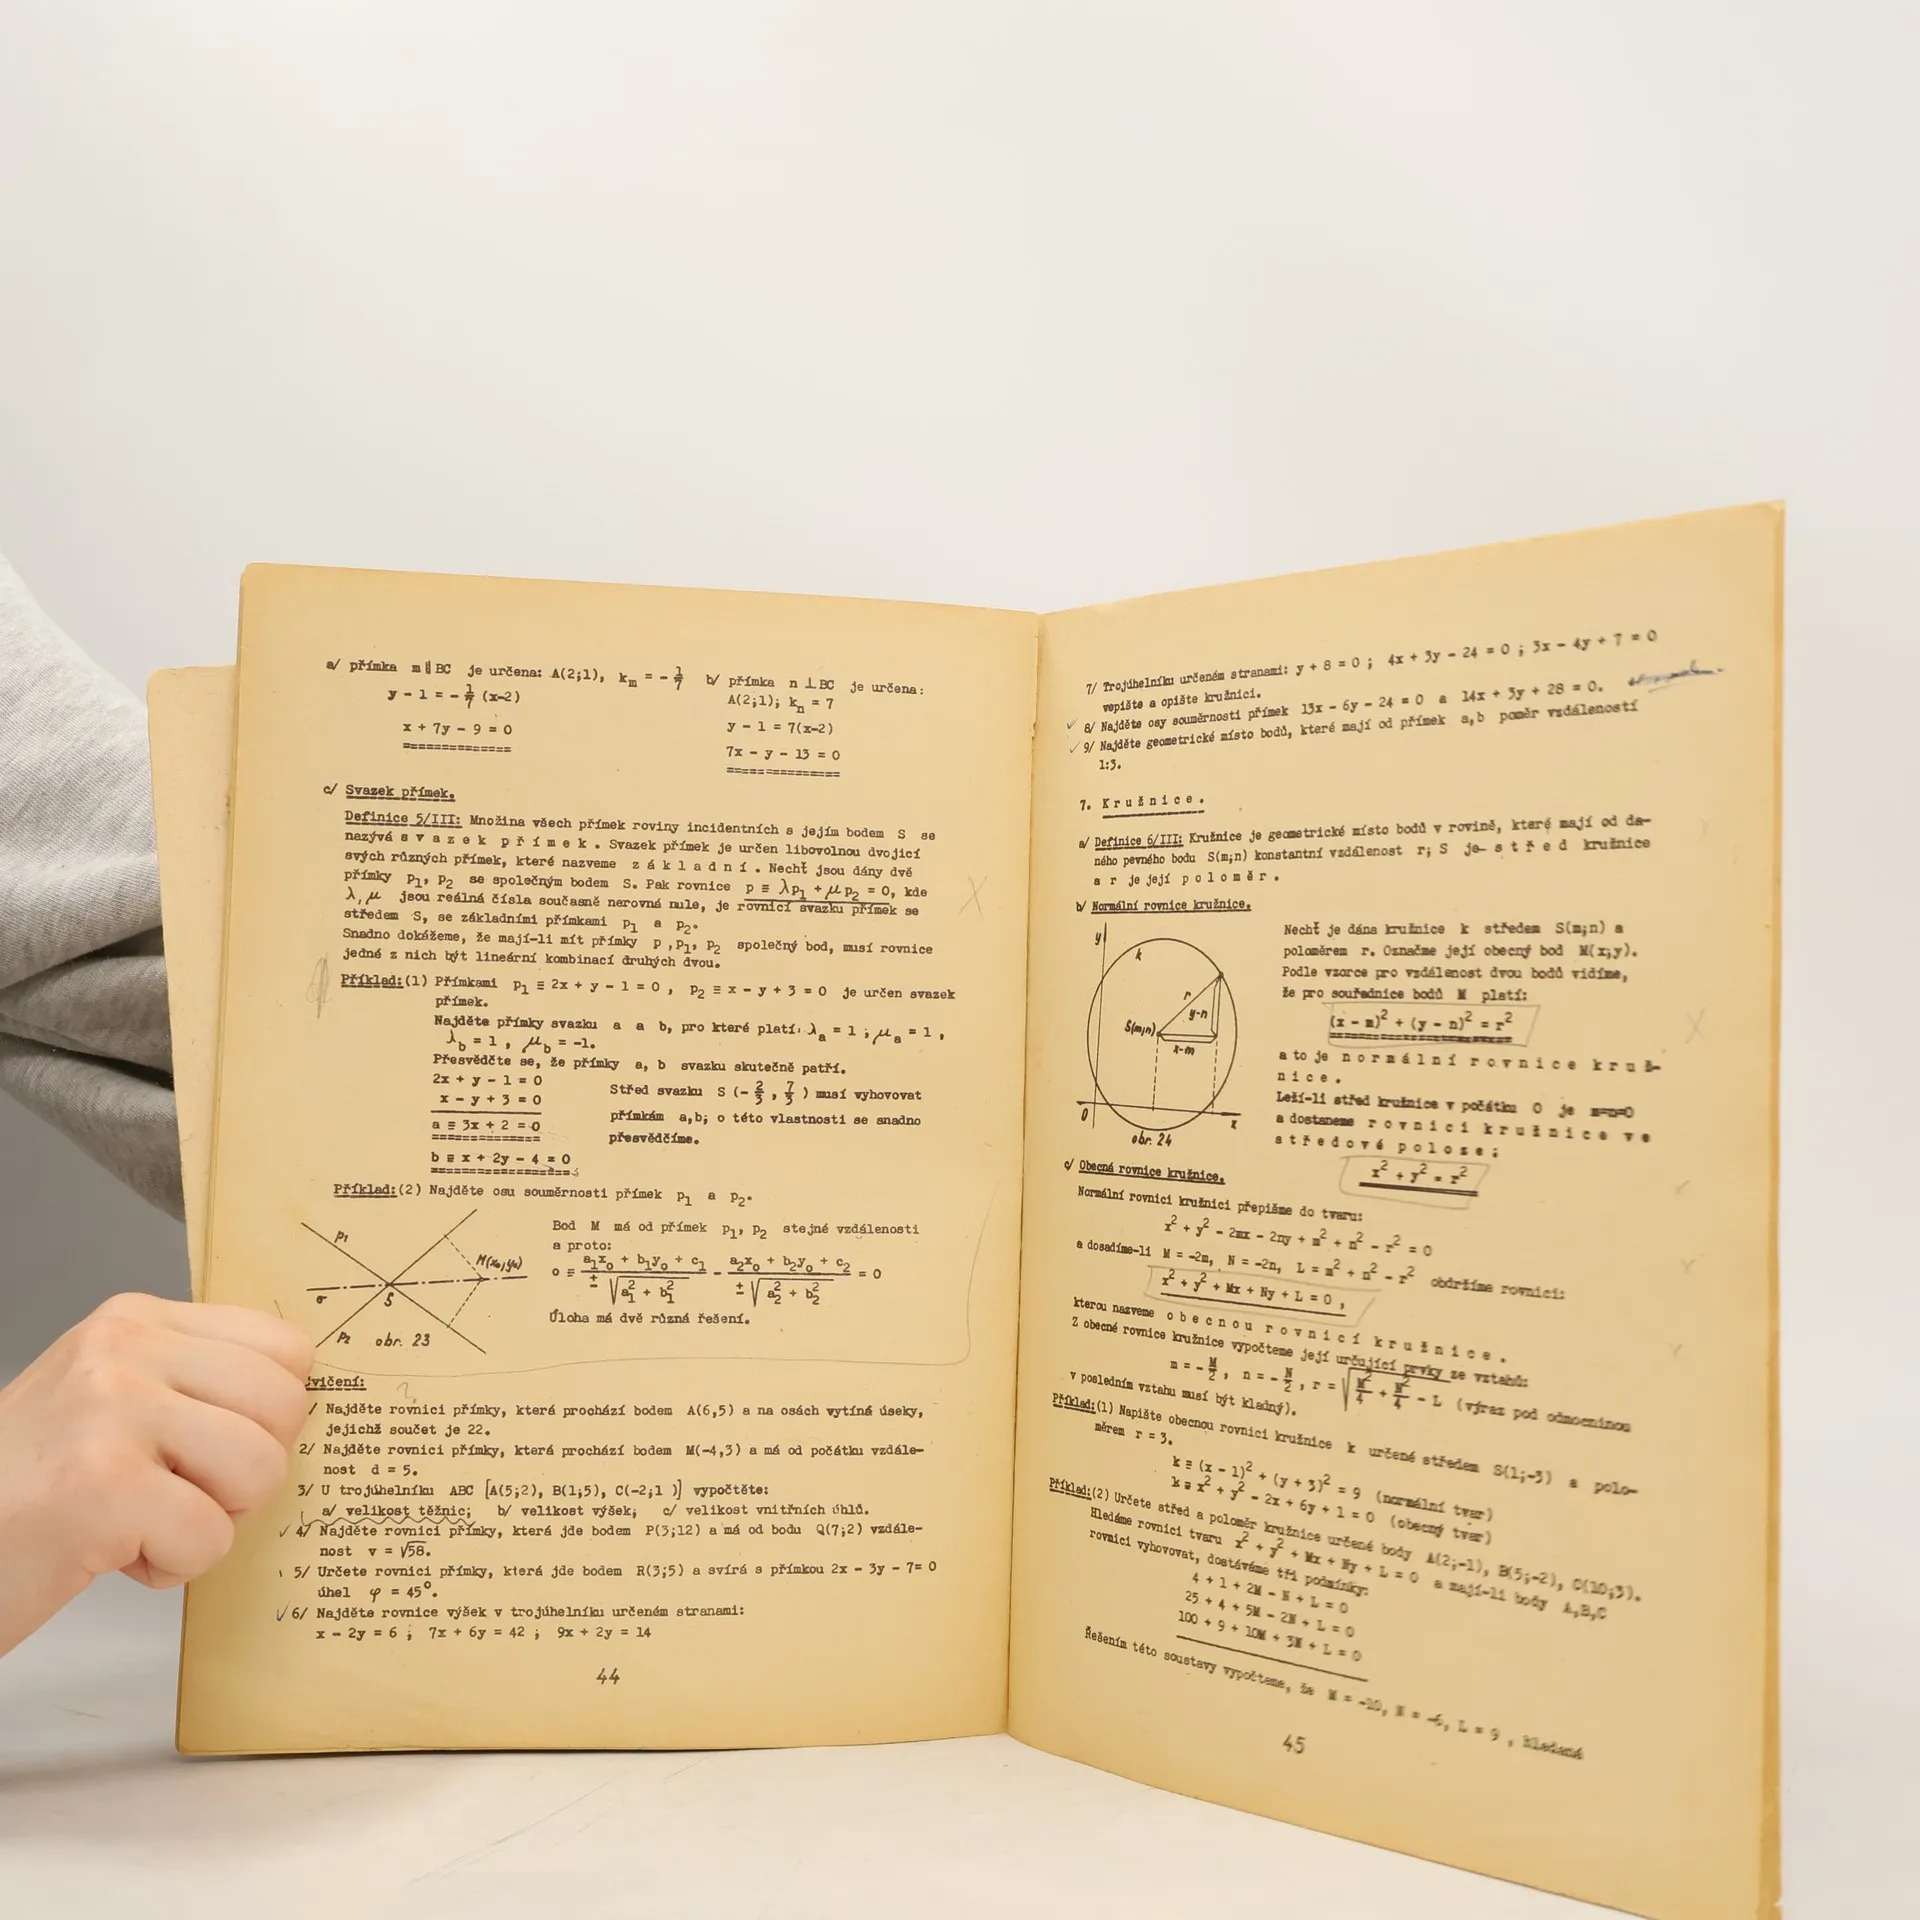 a/ přímka m ∥ BC je určena: A(2;1), k_m = - 1/7
y - 1 = - 1/7 (x-2)
x + 7y - 9 = 0
=============
b/ přímka n ⊥ BC je určena:
A(2;1); k_n = 7
y - 1 = 7(x-2)
7x - y - 13 = 0
==============
c/ Svazek přímek.
Definice 5/III: Množina všech přímek roviny incidentních s jejím bodem S se
nazývá s v a z e k p ř í m e k . Svazek přímek je určen libovolnou dvojicí
svých různých přímek, které nazveme z á k l a d n í . Nechť jsou dány dvě
přímky p₁, p₂ se společným bodem S. Pak rovnice p ≡ λp₁ + μp₂ = 0, kde
λ, μ jsou reálná čísla současně nerovná nule, je rovnicí svazku přímek se
středem S, se základními přímkami p₁ a p₂.
Snadno dokážeme, že mají-li mít přímky p ,p₁, p₂ společný bod, musí rovnice
jedné z nich být lineární kombinací druhých dvou.
Příklad:(1) Přímkami p₁ ≡ 2x + y - 1 = 0 , p₂ ≡ x - y + 3 = 0 je určen svazek
přímek.
Najděte přímky svazku a a b, pro které platí: λ_a = 1 ; μ_a = 1 ,
λ_b = 1 , μ_b = -1.
Přesvědčte se, že přímky a, b svazku skutečně patří.
2x + y - 1 = 0
x - y + 3 = 0
a ≡ 3x + 2 = 0
=============
b ≡ x + 2y - 4 = 0
=================
Střed svazku S (- 2/3 , 7/3 ) musí vyhovovat
přímkám a,b; o této vlastnosti se snadno
přesvědčíme.
Příklad:(2) Najděte osu souměrnosti přímek p₁ a p₂.
p₁
M(x₀,y₀)
σ
S
p₂
obr. 23
Bod M má od přímek p₁, p₂ stejné vzdálenosti
a proto:
o ≡ (a₁x₀ + b₁y₀ + c₁)/(± √(a₁² + b₁²)) - (a₂x₀ + b₂y₀ + c₂)/(± √(a₂² + b₂²)) = 0
Úloha má dvě různá řešení.
vičení:
/ Najděte rovnici přímky, která prochází bodem A(6,5) a na osách vytíná úseky,
jejichž součet je 22.
2/ Najděte rovnici přímky, která prochází bodem M(-4,3) a má od počátku vzdále-
nost d = 5.
3/ U trojúhelníku ABC [A(5;2), B(1;5), C(-2;1 )] vypočtěte:
a/ velikost těžnic; b/ velikost výšek; c/ velikost vnitřních úhlů.
4/ Najděte rovnici přímky, která jde bodem P(3;12) a má od bodu Q(7;2) vzdále-
nost v = √58.
5/ Určete rovnici přímky, která jde bodem R(3;5) a svírá s přímkou 2x - 3y - 7= 0
úhel φ = 45°.
6/ Najděte rovnice výšek v trojúhelníku určeném stranami:
x - 2y = 6 ; 7x + 6y = 42 ; 9x + 2y = 14
44
7/ Trojúhelníku určeném stranami: y + 8 = 0 ; 4x + 3y - 24 = 0 ; 3x - 4y + 7 = 0
vepište a opište kružnici.
8/ Najděte osy souměrnosti přímek 13x - 6y - 24 = 0 a 14x + 3y + 28 = 0.
9/ Najděte geometrické místo bodů, které mají od přímek a,b poměr vzdáleností
1:3.
7. K r u ž n i c e .
a/ Definice 6/III: Kružnice je geometrické místo bodů v rovině, které mají od da-
ného pevného bodu S(m;n) konstantní vzdálenost r; S je s t ř e d kružnice
a r je její p o l o m ě r .
b/ Normální rovnice kružnice.
y
k
r
y-n
S(m;n)
x-m
0
x
obr. 24
Nechť je dána kružnice k středem S(m;n) a
poloměrem r. Označme její obecný bod M(x;y).
Podle vzorce pro vzdálenost dvou bodů vidíme,
že pro souřadnice bodů M platí:
(x - m)² + (y - n)² = r²
a to je n o r m á l n í r o v n i c e k r u ž-
n i c e .
Leží-li střed kružnice v počátku O je m=n=0
a dostaneme r o v n i c i k r u ž n i c e v e
s t ř e d o v é p o l o z e ;
x² + y² = r²
c/ Obecná rovnice kružnice.
Normální rovnici kružnici přepišme do tvaru:
x² + y² - 2mx - 2ny + m² + n² - r² = 0
a dosadíme-li M = -2m, N = -2n, L = m² + n² - r² obdržíme rovnici:
x² + y² + Mx + Ny + L = 0 ,
kterou nazveme o b e c n o u r o v n i c í k r u ž n i c e .
Z obecné rovnice kružnice vypočteme její určující prvky ze vztahů:
m = - M/2 , n = - N/2 , r = √(M²/4 + N²/4 - L) (výraz pod odmocninou
v posledním vztahu musí být kladný).
Příklad:(1) Napište obecnou rovnici kružnice k určené středem S(1;-3) a polo-
měrem r = 3.
k ≡ (x - 1)² + (y + 3)² = 9 (normální tvar)
k ≡ x² + y² - 2x + 6y + 1 = 0 (obecný tvar)
Příklad:(2) Určete střed a poloměr kružnice určené body A(2;-1), B(5;-2), C(10;3).
Hledáme rovnici tvaru x² + y² + Mx + Ny + L = 0 a mají-li body A,B,C
rovnici vyhovovat, dostáváme tři podmínky:
4 + 1 + 2M - N + L = 0
25 + 4 + 5M - 2N + L = 0
100 + 9 + 10M + 3N + L = 0
Řešením této soustavy vypočteme, že M = -10, N = -6, L = 9 , hledaná
45